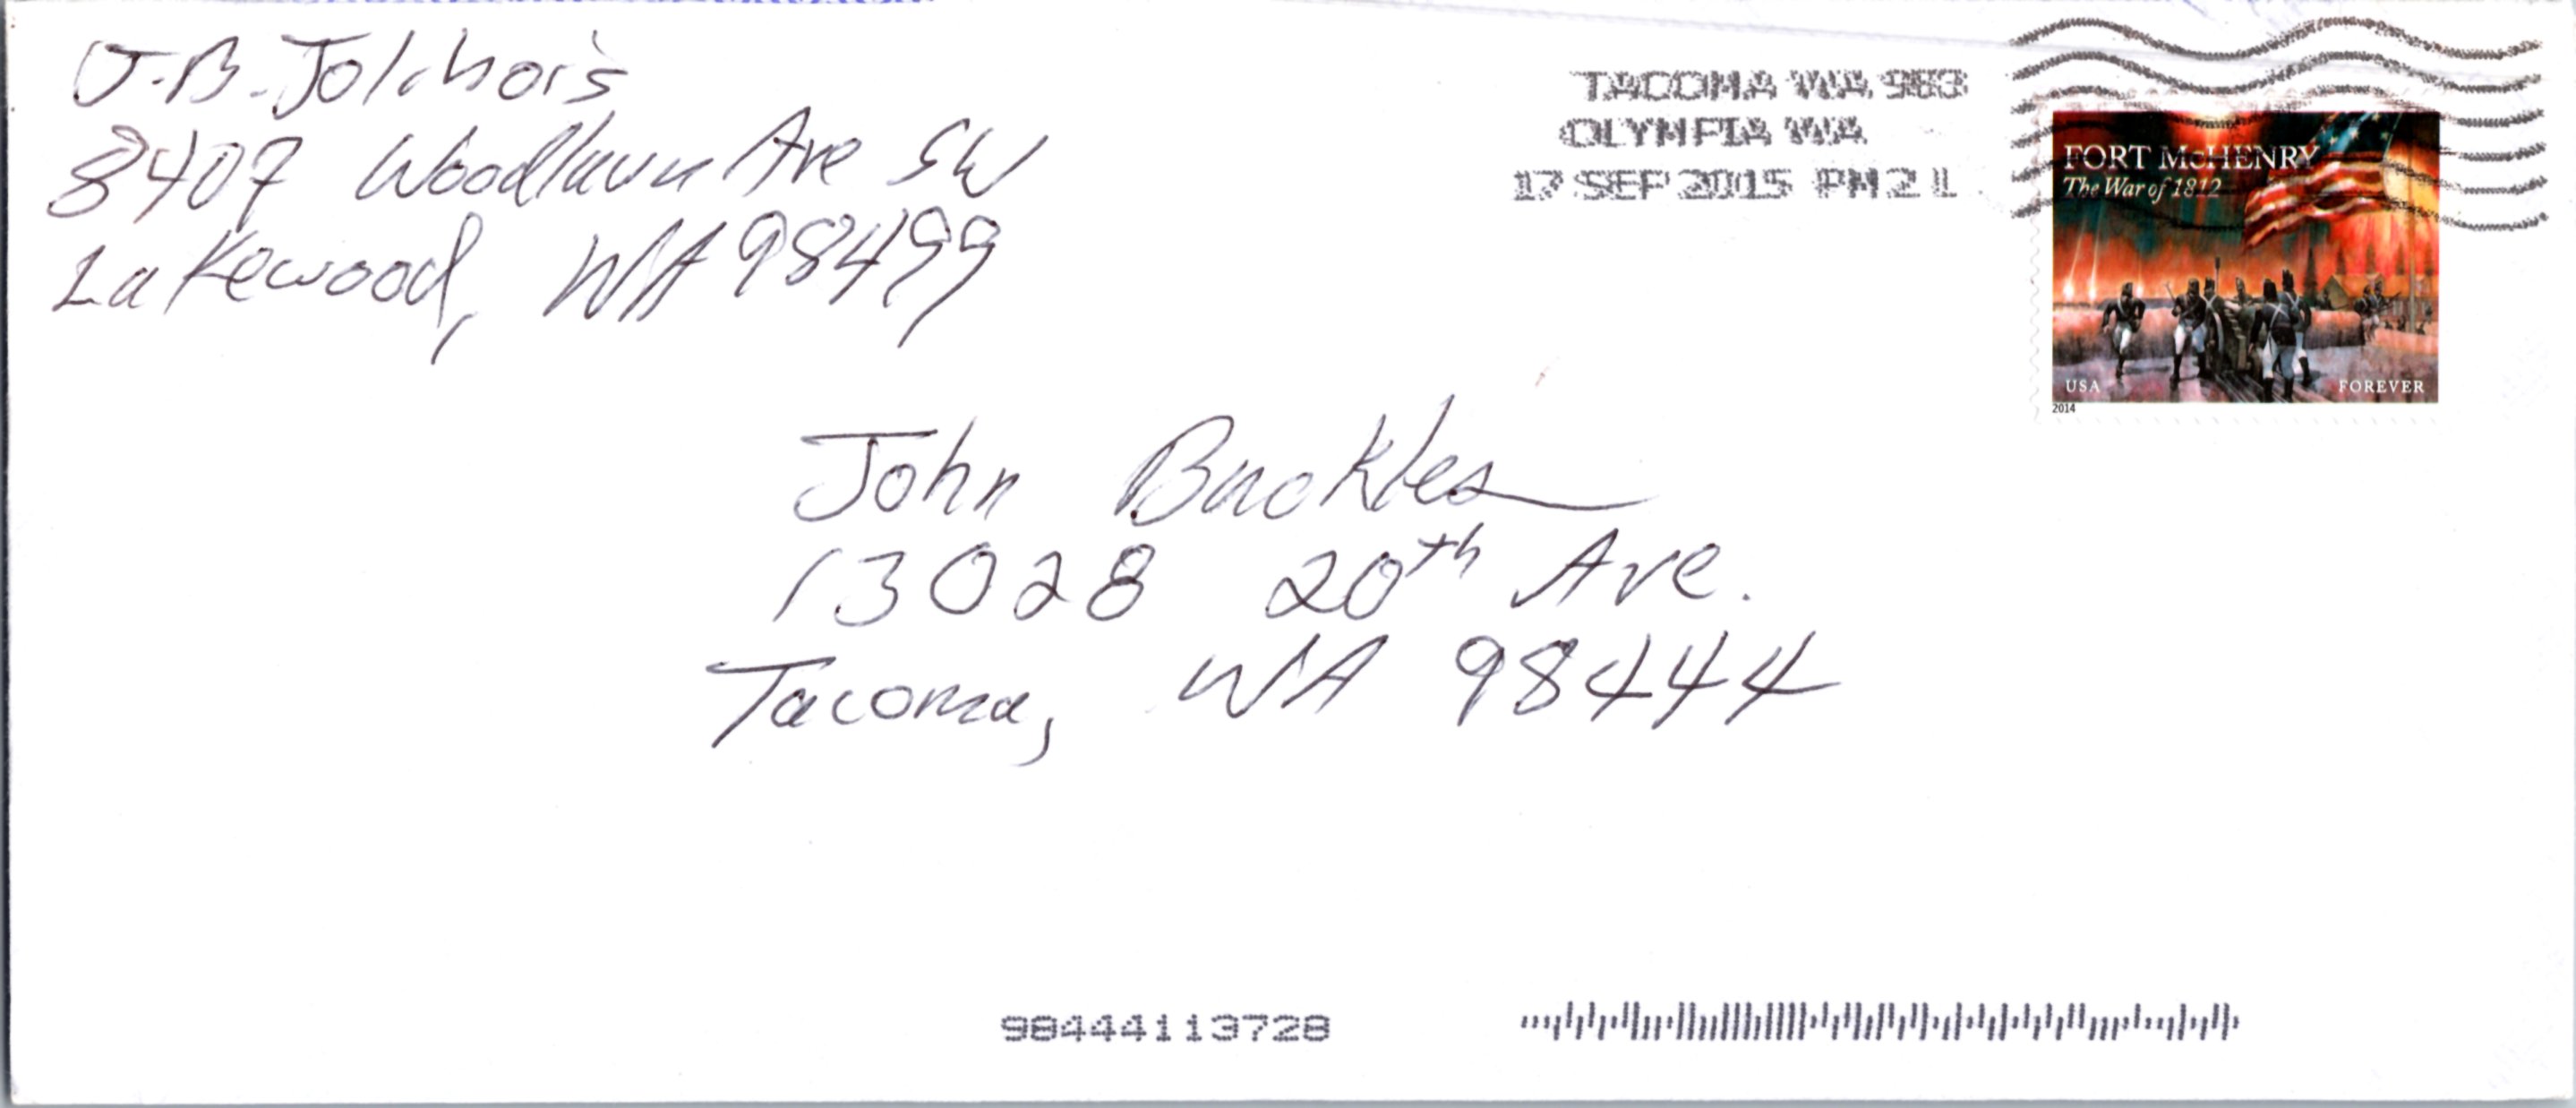 J.B. Jolibois
8407 Woodlawn Ave SW
Lakewood, WA 98499
TACOMA WA 983
OLYMPIA WA
17 SEP 2015 PM 2 L
FORT McHENRY
The War of 1812
USA FOREVER
2014
John Buckles
13028 20th Ave.
Tacoma, WA 98444
98444113728